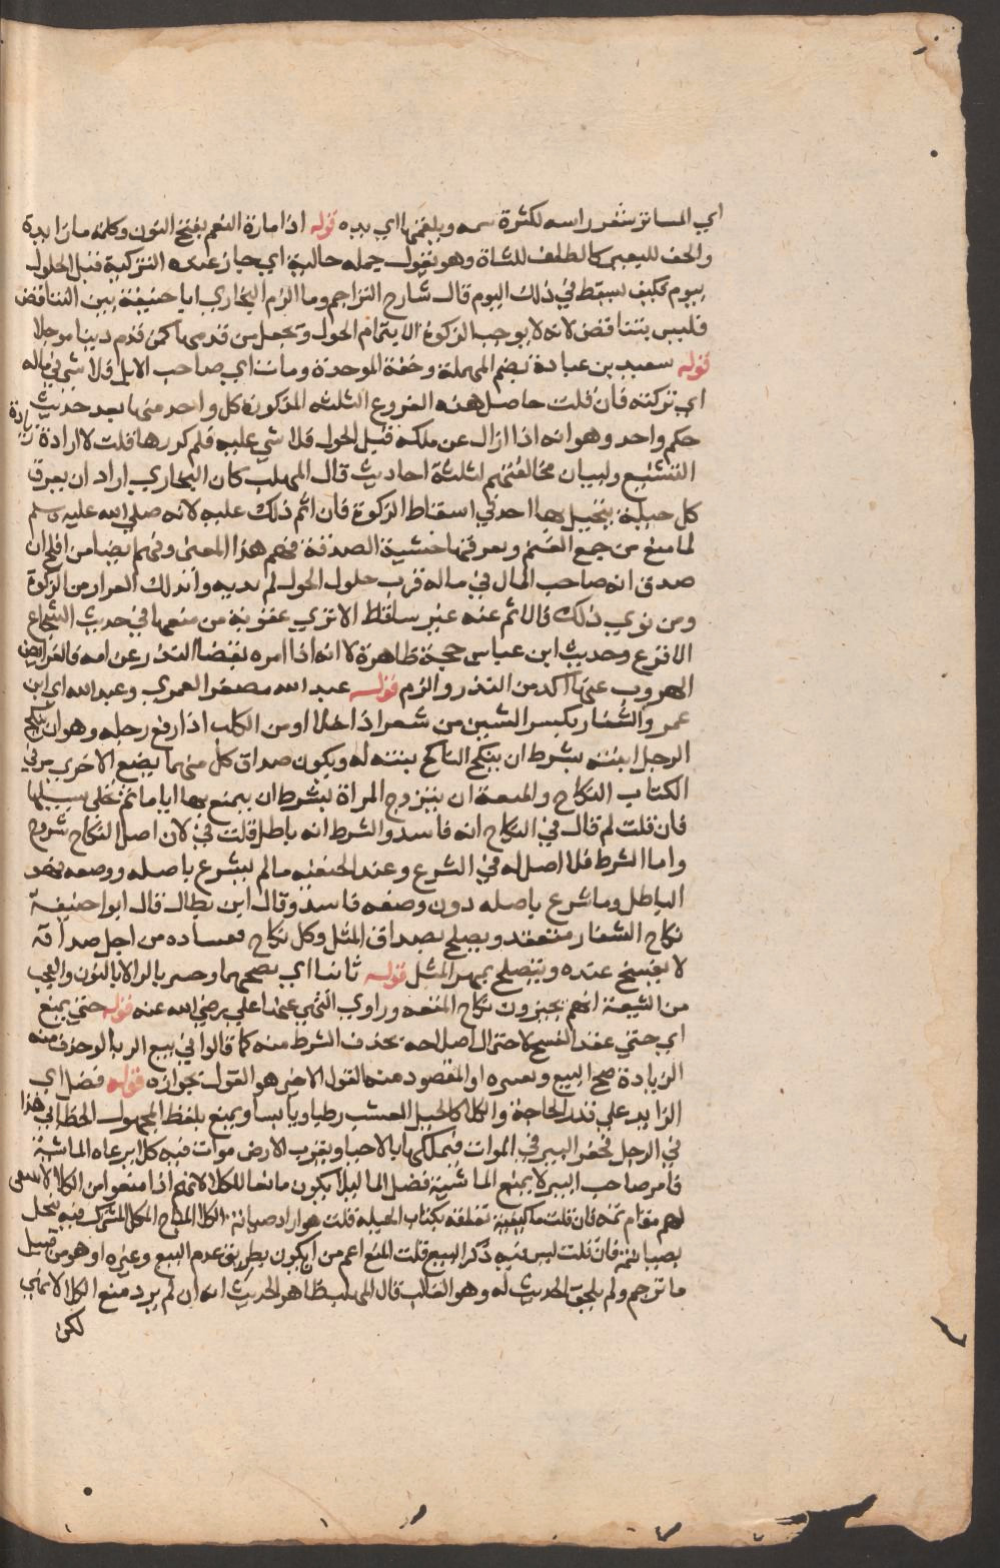 اي المساتر شعر راسه لكثرة سمه ويلقمها اي يده قوله اذا مارة النعم بفتح النون وكلمة ما زايدة
والخف للبعير كالظلف للشاة وهو يقول جملة حالية اي جاز عنده التزكية قبل الحلول
بيوم فكيف يسقط في ذلك اليوم قال شارح التراجم وما الزم البخاري ابا حنيفة من التناقض
فليس بتناقض لانه لا يوجب الزكوة الا بتمام الحول ويجعل من قدمها كمن قدم دينا موجلا
قوله سعد بن عبادة بضم المهملة وخفة الموحدة ومات اي صاحب الابل فلا شي في ماله
اي تركته فان قلت حاصل هذه الفروع الثلثة المذكورة كل واحد منها بعد حديث
حكم واحد وهو انه اذا ازال عن ملكه قبل الحول فلا شي عليه فلم كررها قلت لارادة زيادة
التشنيع ولبيان مخالفتهم لثلثة احاديث قال المهلب كان البخاري اراد ان يعرف
كل حيلة يتحيل بها احد في اسقاط الزكوة فان اثم ذلك عليه لانه صلي الله عليه وسلم
لما منع من جمع الغنم وتفرقتها خشية الصدقة فهم هذا المعنى وفهم ايضا من افلح ان
صدق انه صاحب المال في ماله قرب حلول الحول لم يرد بذلك الفرار من الزكوة
ومن نوي ذلك فالاثم عنه غير ساقط الا تري عقوبة من منعها في حديث الشجاع
الاقرع وحديث ابن عباس حجة ظاهرة لانه اذا امره بقضا النذر عن امه فالفرايض
المهروب عنها اكد من النذر والزم قوله عبد الله مصغر العمري وعبد الله اي ابن
عمر والشغار بكسر الشين من شغر اذا خلا او من الكلب اذا رفع رجله وهو ان ينكح
الرجل ابنته بشرط ان ينكح الناكح بنته له ويكون صداق كل منهما بضع الاخري مر في
الكتاب النكاح والمتعة ان يتزوج المراة بشرط ان يتمتع بها اياما ثم يخلي سبيلها
فان قلت لم قال في النكاح انه فاسد والشرط انه باطل قلت في لان اصل النكاح مشروع
واما الشرط فلا اصل له في الشرع وعند الحنفية ما لم يشرع باصله ووصفه فهو
الباطل وما شرع باصله دون وصفه فاسد وقال ابن بطال قال ابوا حنيفة
نكاح الشغار منعقد ويصلح بصداق المثل وكل نكاح فساده من اجل صداقه
لا يفسخ عقده ويتصلح بمهر المثل قوله اي بضمهما وحمر بالرا لا بالنون والعجب
من الشيعة انهم يجيزون نكاح المتعة وراوي النهي عنها علي رضي الله عنه قوله حتي يمنع
اي حتي عقد الفسخ لاحتمال اصلاحه بحذف الشرط منه كما قالوا في بيع الربا لو حذف منه
الزيادة صح البيع او المقصود منه القول الاخير هو القول بجوازه قوله فضل اي
الزايد علي قدر الحاجة والكلا كالجبل العشب رطبا ويابسا ويمنع بلفظ المجهول الخطابي هذا
في الرجل يحفر البير في الموات فيملكها بالاحيا وبقرب الارض موات فيه كلا يرعاه الماشية
فامر صاحب البير لا يمنع الماشية فضل الما ليلا يكون مانعا للكلا لانهم اذا منعوا من الكلا لا يبقى
لهم مقام ثمه فان قلت ما كيفية تعلقه بكتاب الحيلة قلت هو اراد صيانة الكلا المباح المشترك فيه فتحيل
بصيانته فان قلت ليس فيه ذكر البيع قلت المنع اعم من ان يكون بطريق عدم البيع وغيره او هو من قبيل
ما ترجم ولم يلحق الحديث له وهو الغالب قال المهلب ظاهر الحديث انه ان لم يرد منع الكلا لا نهي
لكن